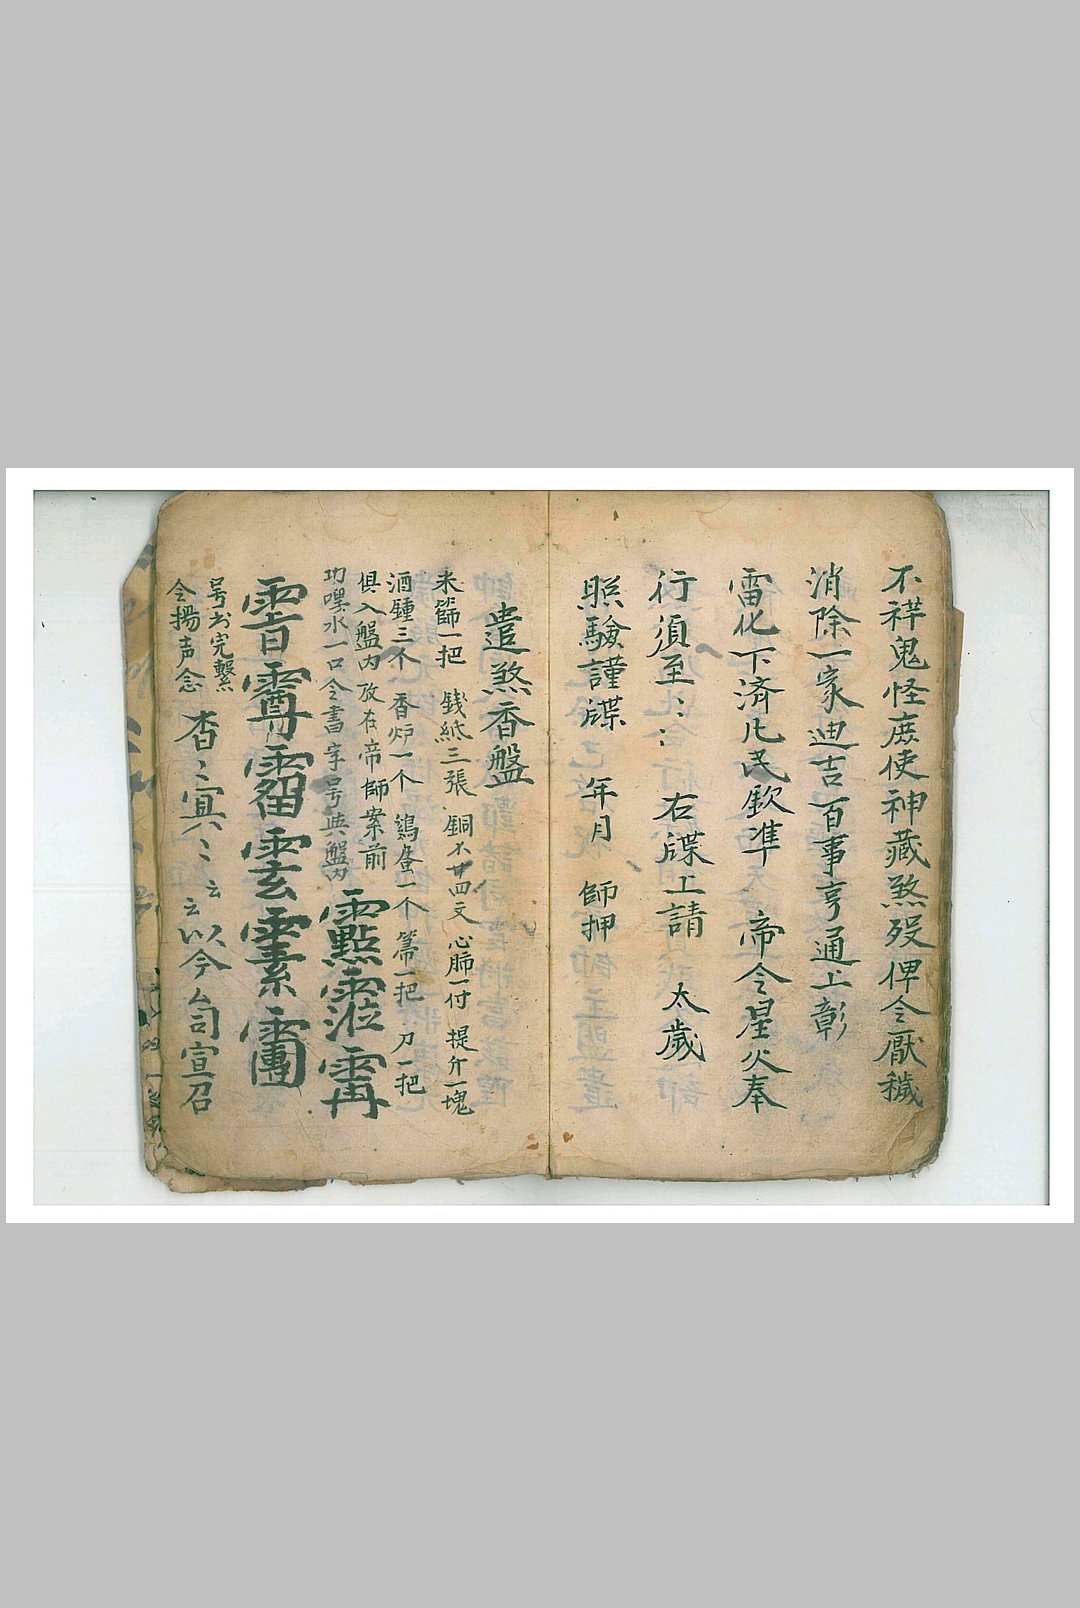 不祥鬼怪庶使神藏煞歿俾令厭穢
消除一家迪吉百事亨通上彰
雷化下済凢民欽準 帝令星火奉
行須至〻〻 右牒上請 太歲
照驗謹牒 年月 師押
遣煞香盤
米篩一把 銭紙三張 銅不廿四文 心肺一付 提介一塊
酒鍾三个 香炉一个 鷄蛋一个 箒一把 刀一把
俱入盤内放在帝師案前
叻噀水一口令書字号與盤内
号书完繫
令揚声念 杳〻冥〻〻云云以今台司宣召